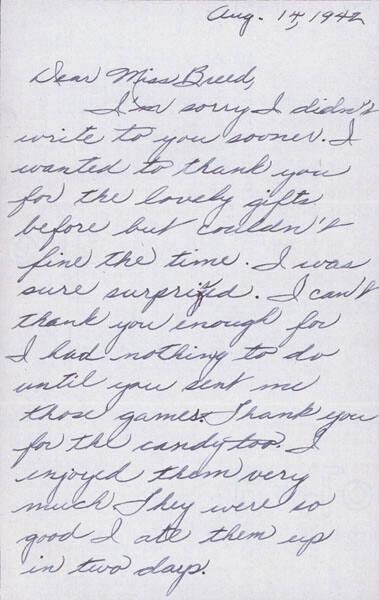 Aug. 14, 1942
Dear Miss Breed,
I'm sorry I didn't
write to you sooner. I
wanted to thank you
for the lovely gifts
before but couldn't
fine the time. I was
sure surprized. I can't
thank you enough for
I had nothing to do
until you sent me
those games. Thank you
for the candy too. I
enjoyed them very
much. They were so
good I ate them up
in two days.